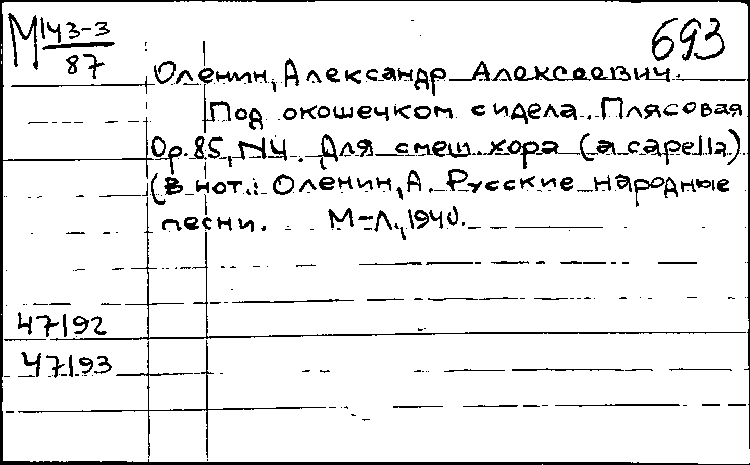 М 143-3
87
693
Оленин, Александр Алексеевич.
Под окошечком сидела. Плясовая
Op. 85, N4. Для смеш. хора (a capella)
(В нот.: Оленин, А. Русские народные
песни. М-Л., 1940.
47192
47193